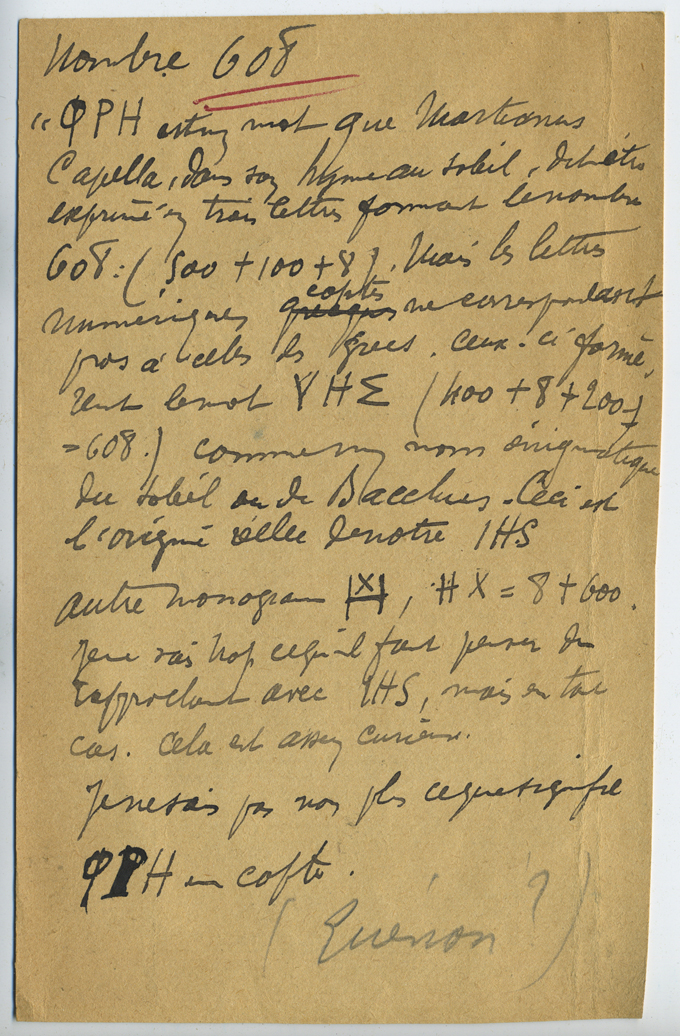 Nombre 608
"ΦΡΗ est un mot que Martianus
Capella, dans son hymne au soleil, dit être
exprimé en trois lettres formant le nombre
608: (500 + 100 + 8). Mais les lettres
numériques grecques coptes ne correspondant
pas à celles des grecs, ceux-ci formè-
rent le mot ΥΗΣ (400 + 8 + 200
= 608.) comme un nom énigmatique
du soleil ou de Bacchus. Ceci est
l'origine réelle de notre IHS
autre monogram |X|, HX = 8 + 600.
Je ne sais trop ce qu'il faut penser du
rapprochement avec IHS, mais en tout
cas. cela est assez curieux.
Je ne sais pas non plus ce que signifie
ΦΡΗ en copte.
(Guénon ?)